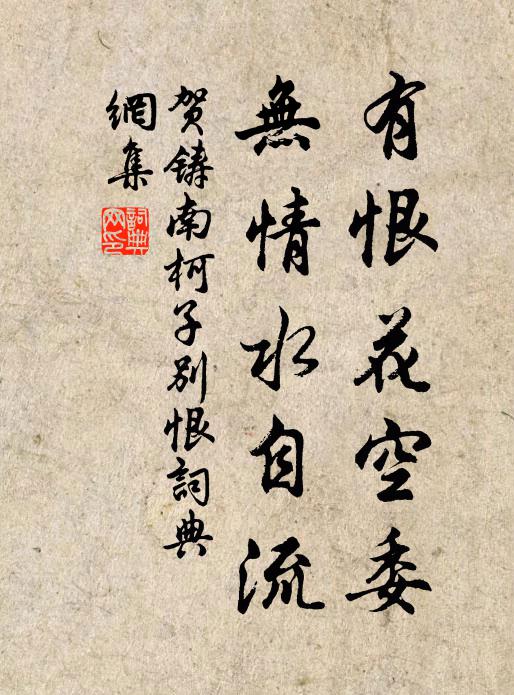 有恨花空委
無情水自流
贺铸南柯子別恨詞典
網集
詞典网印